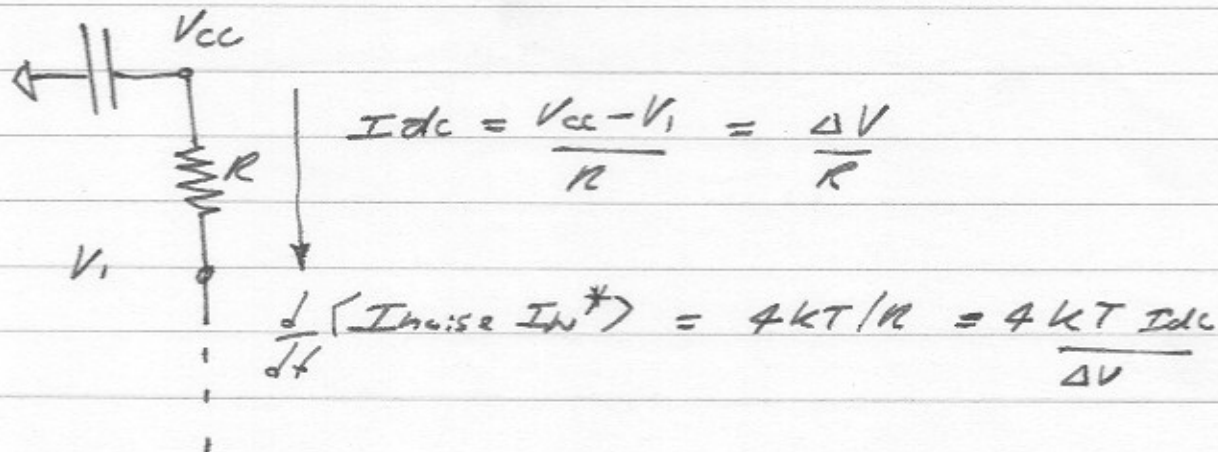 Vcc
Idc = Vcc - V1 / R = ΔV / R
R
V1
d/df ⟨Inoise In*⟩ = 4kT/R = 4kT Idc / ΔV